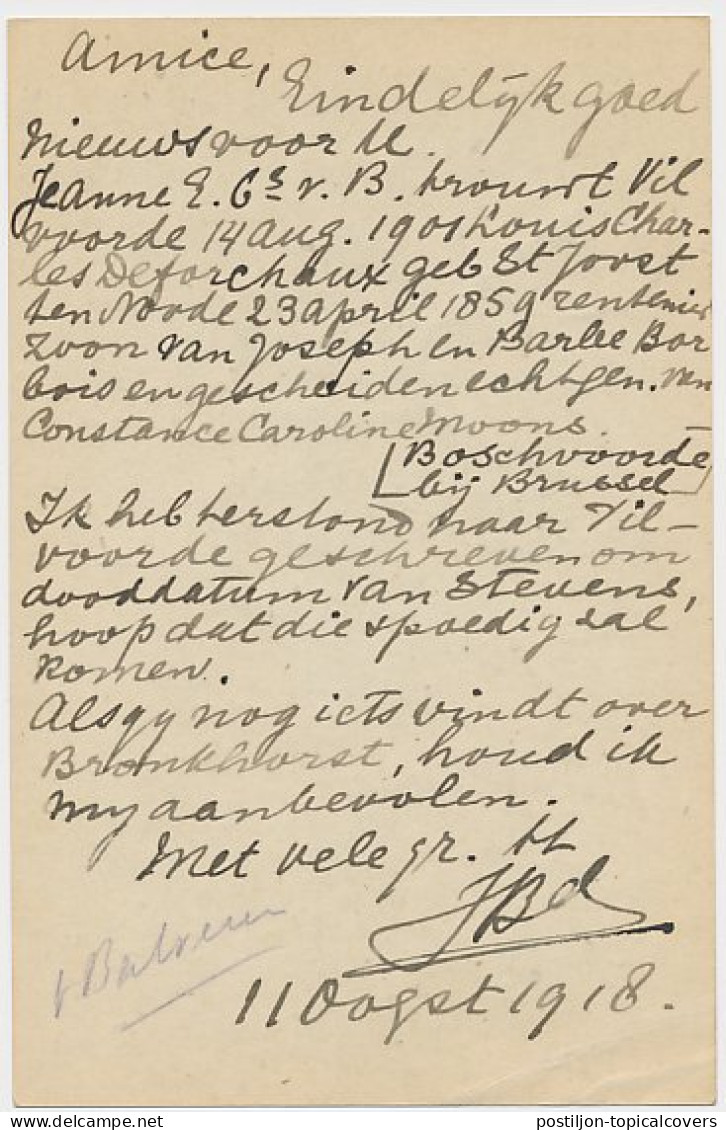 Amice,
Eindelijk goed
nieuws voor U.
Jeanne E. Css v. B. trouwt Vil
voorde 14 aug. 1901 Louis Char-
les Deforchaux geb St Joost
ten Noode 23 april 1859 rentenier
zoon van Joseph en Barbe Bor
bois en gescheiden echtgen. van
Constance Caroline Moons.
[Boschvoorde
bij Brussel]
Ik heb terstond naar Vil-
voorde geschreven om
dooddatum van Stevens,
hoop dat die spoedig zal
komen.
Als gy nog iets vindt over
Bronkhorst, houd ik
my aanbevolen.
Met vele gr. tt
JBd
11 Oogst 1918.
postiljon-topicalcovers